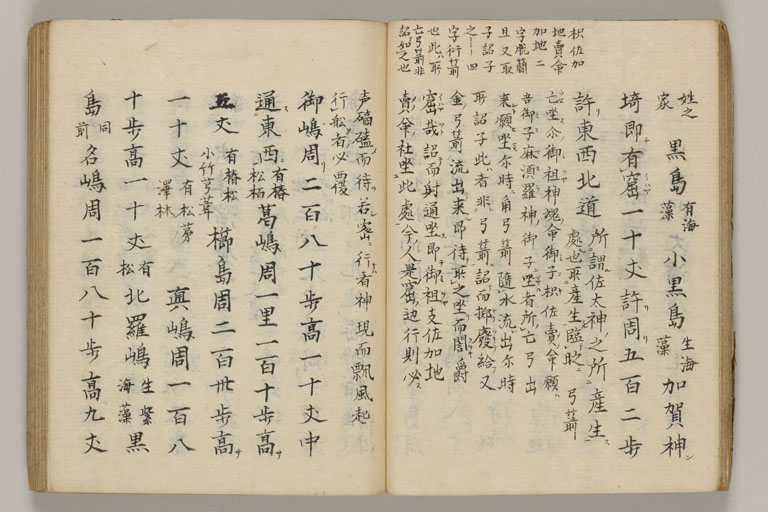 枳佐加
地賣命
加地二
字脱簡
且又取
子詔子
之ー四
字衍箭
也此取
亡弓箭非
詔如之也
姓之家 黒島 有海藻 小黒島 生海藻 加賀神
埼即有窟一十丈許周五百二步
許東西北道 所謂佐太神之所産生
處也所産生臨時 弓箭
亡坐尒御祖神魂命御子枳佐賣命願
吾御子麻須羅神御子坐者所亡弓出
来願坐尒時角弓箭隨水流出尒時
取詔子此者非弓箭詔而擲廢給又
金弓箭流出来即待取之坐而闇鬱
窟哉詔而射通坐即御祖支佐加地
賣命社坐此處今人是窟边行則必
声磕磕而待若密行者神現而飄風起
行舩者必覆
御嶋周二百八十步高一十丈中
通東西 有椿松栢 葛嶋周一里一百十步高
五丈 有椿松小竹茅葦 櫛島周二百卅步高
一十丈 有松茅澤林 真嶋周一百八
十步高一十丈 有松 北羅嶋 生紫海藻 黒
島 同前 名嶋周一百八十步高九丈